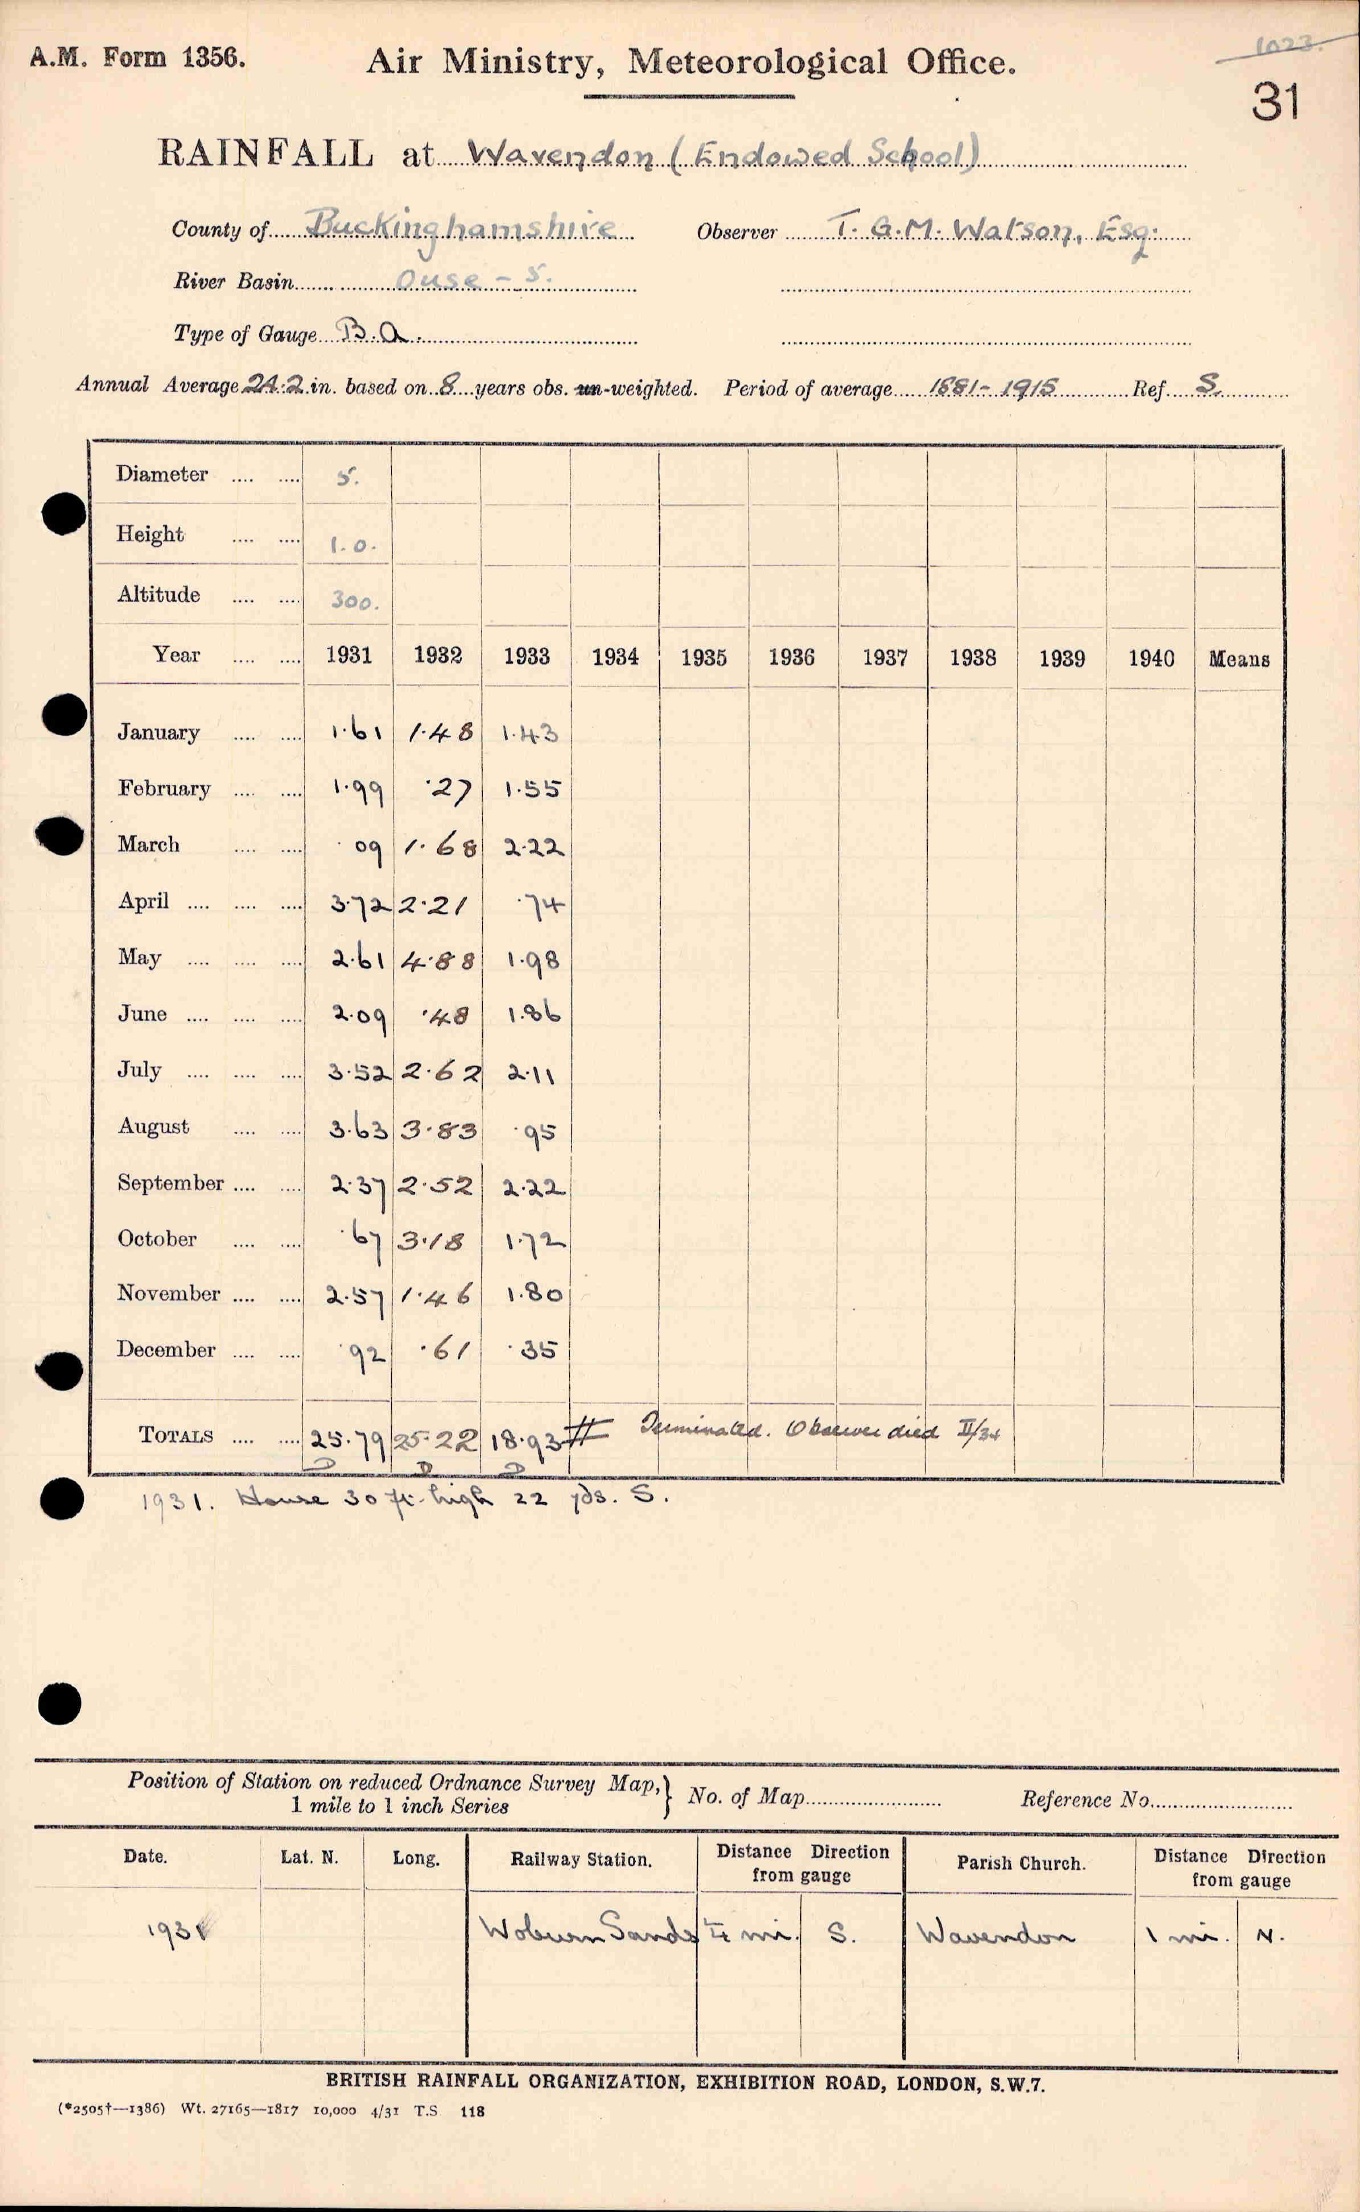 A.M. Form 1356.
Air Ministry, Meteorological Office.
1023.
31
RAINFALL at Wavendon (Endowed School)
County of Buckinghamshire Observer T. G.M. Watson, Esq.
River Basin Ouse - 5.
Type of Gauge B.a.
Annual Average 24.2 in. based on 8 years obs. un-weighted. Period of average 1881-1915 Ref. S.
Diameter .... .... 5.
Height .... .... 1.0.
Altitude .... .... 300.
Year .... .... 1931 1932 1933 1934 1935 1936 1937 1938 1939 1940 Means
January .... .... 1.61 1.48 1.43
February .... .... 1.99 .27 1.55
March .... .... .09 1.68 2.22
April .... .... .... 3.72 2.21 .74
May .... .... .... 2.61 4.88 1.98
June .... .... .... 2.09 .48 1.86
July .... .... .... 3.52 2.62 2.11
August .... .... 3.63 3.83 .95
September .... .... 2.37 2.52 2.22
October .... .... .67 3.18 1.72
November .... .... 2.57 1.46 1.80
December .... .... .92 .61 .35
TOTALS .... .... 25.79 25.22 18.93 Terminated. Observer died II/34
D D D
1931. House 30 ft. high 22 yds. S.
Position of Station on reduced Ordnance Survey Map,} No. of Map Reference No.
1 mile to 1 inch Series
Date. Lat. N. Long. Railway Station. Distance Direction from gauge Parish Church. Distance Direction from gauge
1931 Woburn Sands ¼ mi. S. Wavendon 1 mi. N.
BRITISH RAINFALL ORGANIZATION, EXHIBITION ROAD, LONDON, S.W.7.
(*2505†—1386) Wt. 27165—1817 10,000 4/31 T.S 118